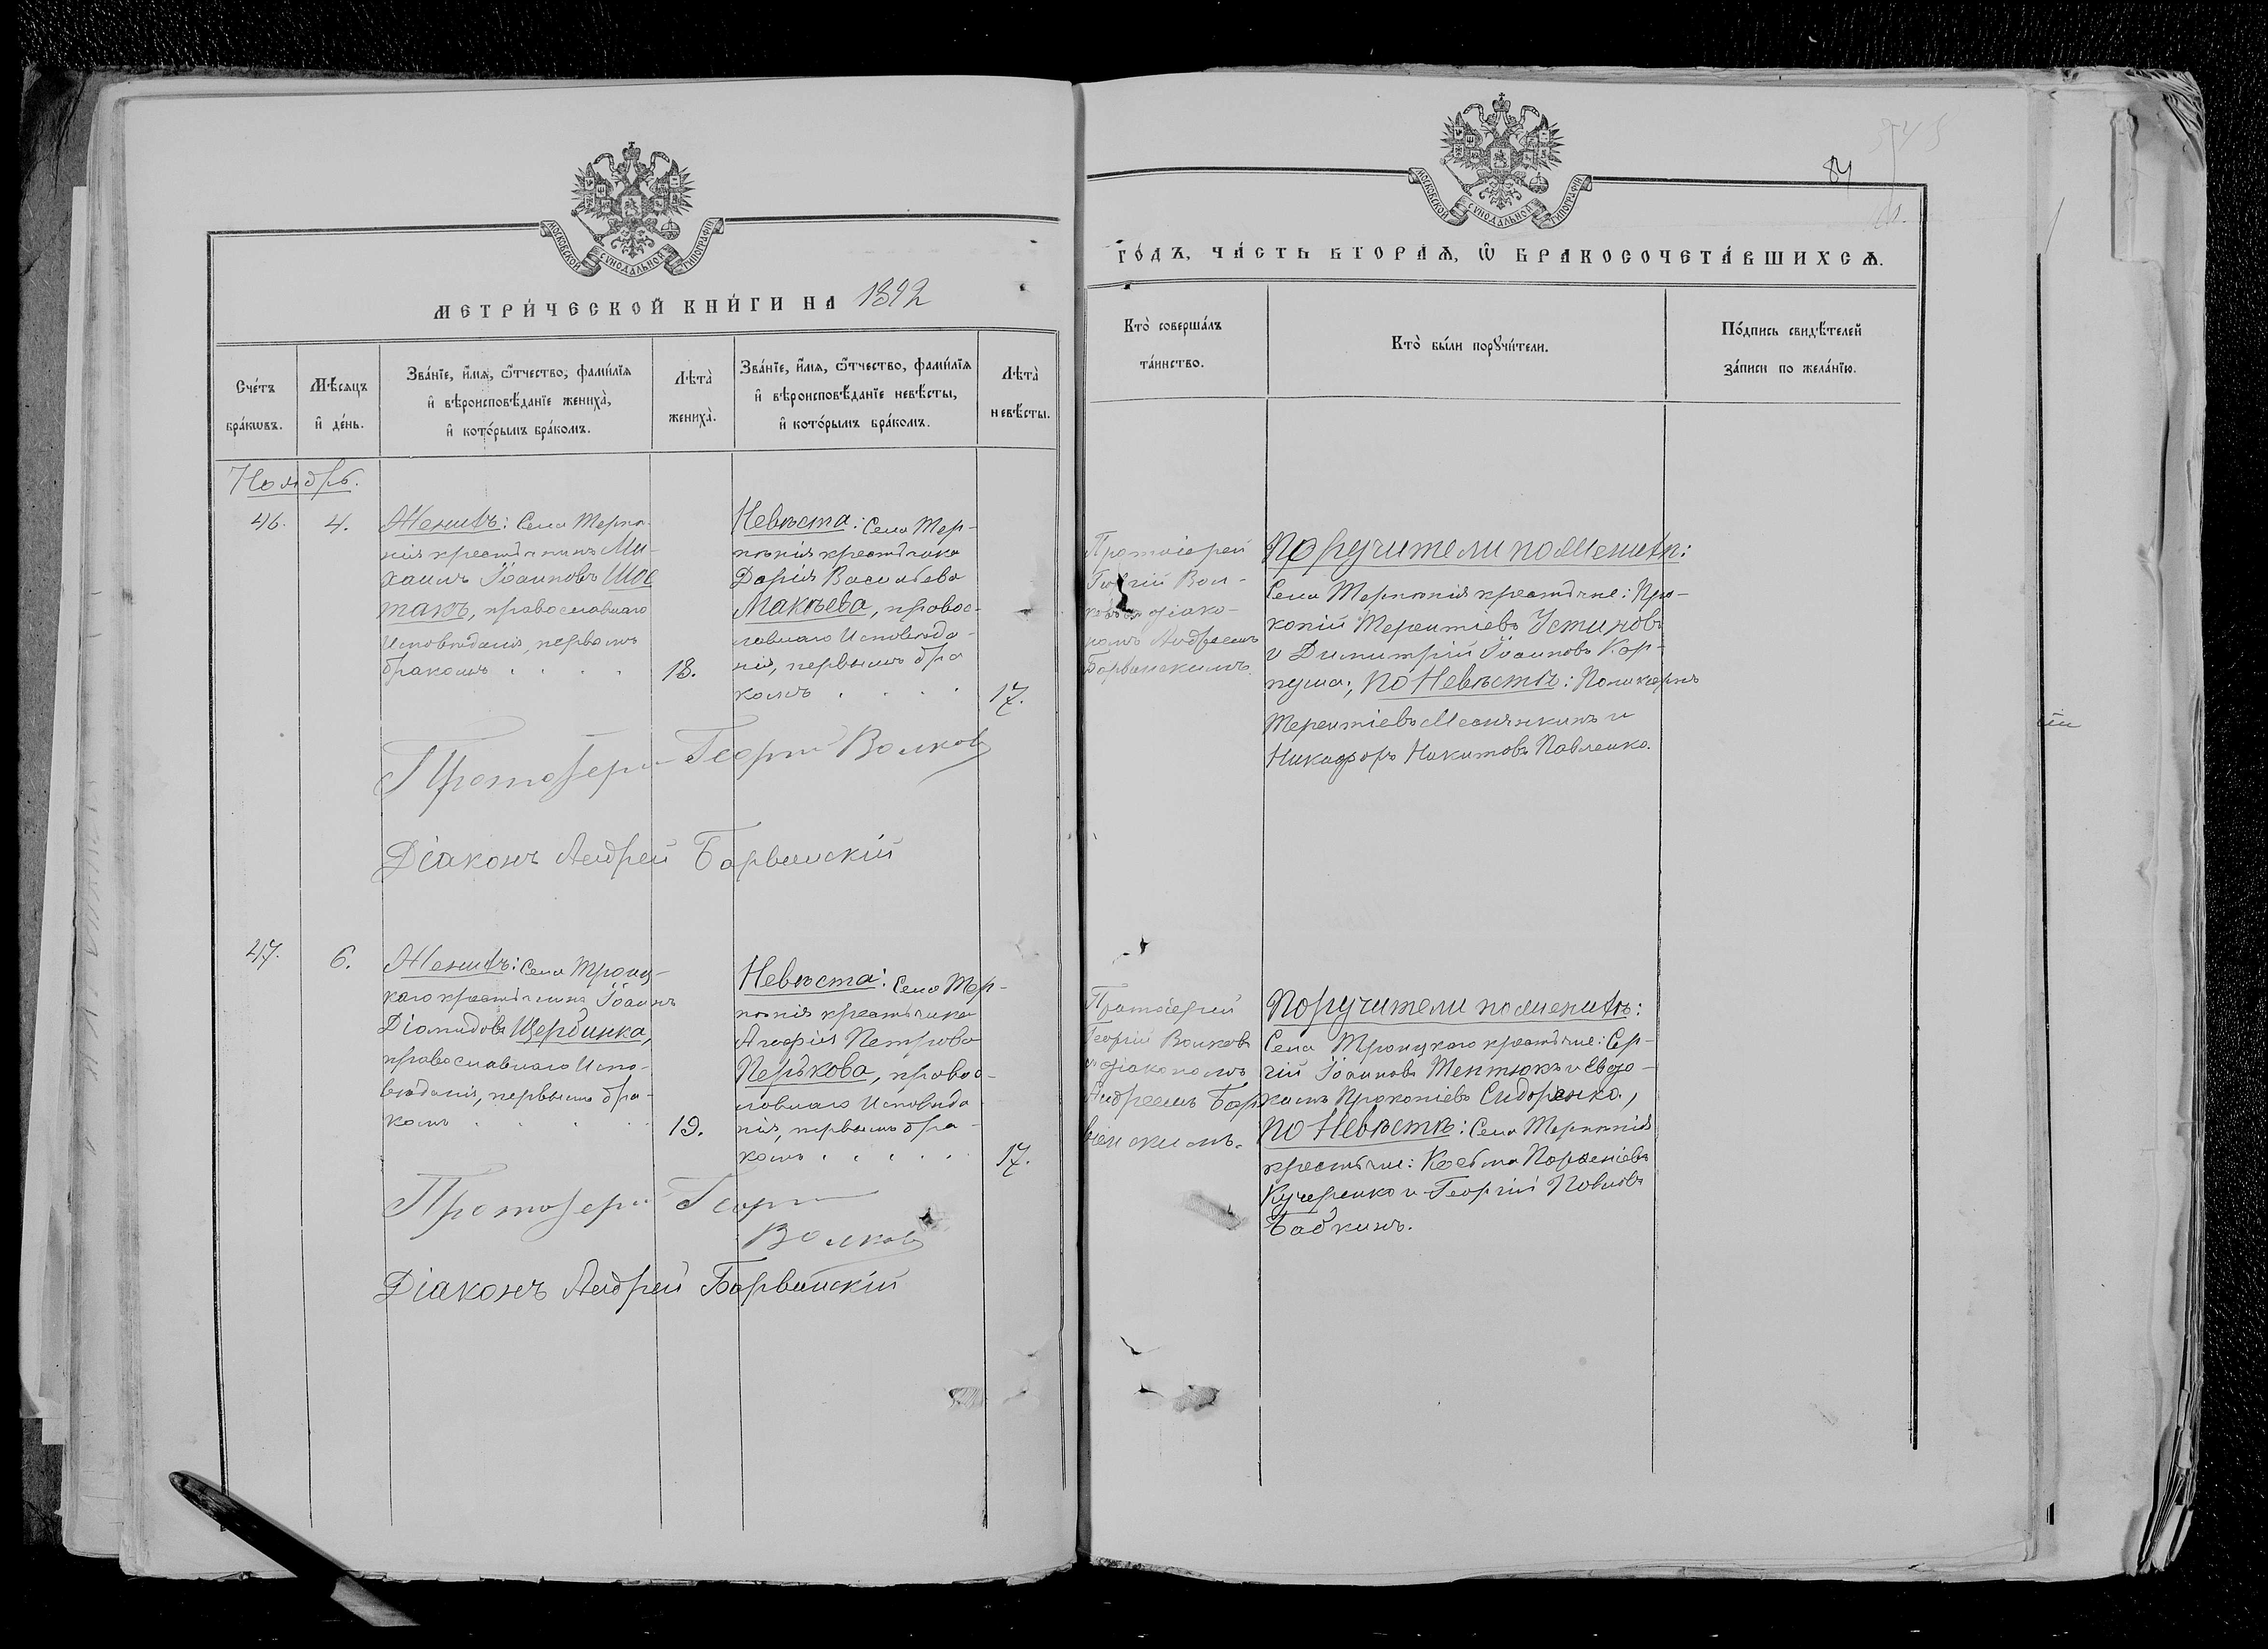 МОСКОВСКОЙ СѴНОДАЛЬНОЙ ТИПОГРАФІИ
МЕТРИ́ЧЕСКОЙ КНИ́ГИ НА 1892
Сче́тъ бра́кѡвъ.
Мѣ́сяцъ и҆ де́нь.
Зва́нїе, и҆́мя, ѻ҆́тчество, фами́лїя и҆ вѣроисповѣ́данїе жениха̀, и҆ кото́рымъ бра́комъ.
Лѣта̀ жениха̀.
Зва́нїе, и҆́мя, ѻ҆́тчество, фами́лїя и҆ вѣроисповѣ́данїе невѣ́сты, и҆ кото́рымъ бра́комъ.
Лѣта̀ невѣ́сты.
Ноябрь.
46.
4.
Женихъ: Села Терпѣ-
нія крестьянинъ Ми-
хаилъ Іоанновъ Шос
такъ, православнаго
Исповѣданія, первымъ
бракомъ . . . .
18.
Невѣста: Села Тер-
пѣнія крестьянка
Дарія Васильева
Макѣева, правос-
лавнаго Исповѣда-
нія, первымъ бра
комъ . . . .
17.
Протоіерей Георгій Волковъ
Діаконъ Андрей Барвинскій
47.
6.
Женихъ: Села Троиц-
каго крестьянинъ Іоаннъ
Діомидовъ Щербинка,
православнаго Испо-
вѣданія, первымъ бра-
комъ . . . .
19.
Невѣста: Села Тер-
пѣнія крестьянка
Агафія Петрова
Перькова, правос-
лавнаго Исповѣда
нія, первымъ бра-
комъ . . . . .
17.
Протоіерей Георгій
Волковъ
Діаконъ Андрей Барвинскій
МОСКОВСКОЙ СѴНОДАЛЬНОЙ ТИПОГРАФІИ
ГО́ДЪ, ЧА́СТЬ ВТОРА́Ѧ, Ѡ҆ БРАКОСОЧЕТА́ВШИХСѦ.
Кто̀ соверша́лъ та́инство.
Кто̀ бы́ли порꙋчи́тели.
По́дпись свидѣ́телей за́писи по жела́нїю.
Протоіерей
Георгій Вол-
ковъ съ діако-
номъ Андреемъ
Барвинскимъ.
Поручители по Женихѣ:
Села Терпѣнія крестьяне: Про-
копій Терентіевъ Устиновъ
и Димитрій Іоанновъ Кар-
пуша; по Невѣстѣ: Поликарпъ
Терентіевъ и
Никифоръ Никитовъ Павленко.
Протоіерей
Георгій Волковъ
съ діакономъ
Андреемъ Бар
винскимъ.
Поручители по женихѣ:
Села Троицкаго крестьяне: Сер-
гій Іоанновъ Тентюкъ и Евдо-
кимъ Прокопіевъ Сидоренко,
по Невѣстѣ: Села Терпѣнія
крестьяне: Косьма Парѳеніевъ
Кучеренко и Георгій Павловъ
Бабкинъ.